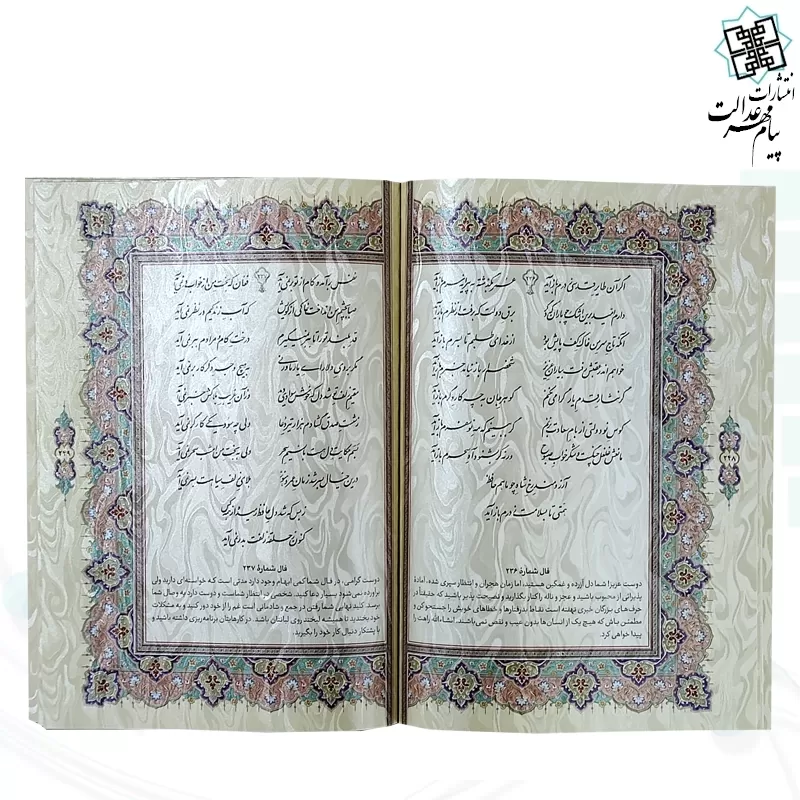 انتشارات
پیام مهر عدالت
اگر آن طایر قدسی ز درم باز آید ۲۳۶ عمر بگذشته به پیرانه سرم باز آید
دارم امید برین اشک چو باران که دگر برق دولت که برفت از نظرم باز آید
آنکه تاج سر من خاک کف پایش بود از خدا می‌طلبم تا به سرم باز آید
خواهم اندر عقبش رفت به یاران عزیز شخصم ار باز نیاید خبرم باز آید
گر نثار قدم یار گرامی نکنم گوهر جان به چه کار دگرم باز آید
کوس نو دولتی از بام سعادت بزنم گر ببینم که مه نو سفرم باز آید
مانعش غلغل چنگست و شکر خواب صبوح ورنه گر بشنود آه سحرم باز آید
آرزومند رخ شاه چو ماهم حافظ
همتی تا به سلامت ز درم باز آید
فال شمارهٔ ۲۳۶
دوست عزیز! شما دل آزرده و غمگین هستید، اما زمان هجران و انتظار سپری شده. آمادهٔ
پذیرایی از محبوب باشید و عجز و ناله را کنار بگذارید و نصیحت پذیر باشید که حقیقتاً در
حرف‌های بزرگان خیری نهفته است نقاط بدرفتارها و خطاهای خویش را جستجو کن و
مطمئن باش که هیچ یک از انسان‌ها بدون عیب و نقص نمی‌باشند. انشاءالله راهت را
پیدا خواهی کرد.
۲۹۸
نفس برآمد و کام از تو بر نمی‌آید ۲۳۷ فغان که بخت من از خواب در نمی‌آید
صبا به چشم من انداخت خاکی از کویش که آب زندگیم در نظر نمی‌آید
قد بلند تو را تا به بر نمی‌گیرم درخت کام و مرادم به بر نمی‌آید
مگر به روی دلارای یار ما ورنی به هیچ وجه دگر کار بر نمی‌آید
مقیم زلف تو شد دل که خوش سوادی دید وزان غریب بلاکش خبر نمی‌آید
ز شست صدق گشادم هزار تیر دعا ولی چه سود یکی کارگر نمی‌آید
بسم حکایت دل هست با نسیم سحر ولی به بخت من امشب سحر نمی‌آید
درین خیال به سر شد زمان عمر و هنوز بلای زلف سیاهت به سر نمی‌آید
ز بس که شد دل حافظ رمیده از همه کس
کنون ز حلقه زلفت به در نمی‌آید
فال شمارهٔ ۲۳۷
دوست گرامی، در فال شما کمی ابهام وجود دارد مدتی است که خواسته‌ای دارید ولی
برآورده نمی‌شود بسیار دعا کنید. شخصی در انتظار شماست و دوست دارد به وصال شما
برسد. کلید تنهایی شما رفتن در جمع و شادمانی است غم را از خود دور کنید و به مشکلات
خود بخندید تا همیشه لبخند روی لبانتان باشد. در کارهایتان برنامه‌ریزی داشته باشید و
با پشتکار دنبال کار خود را بگیرید.
۲۹۹